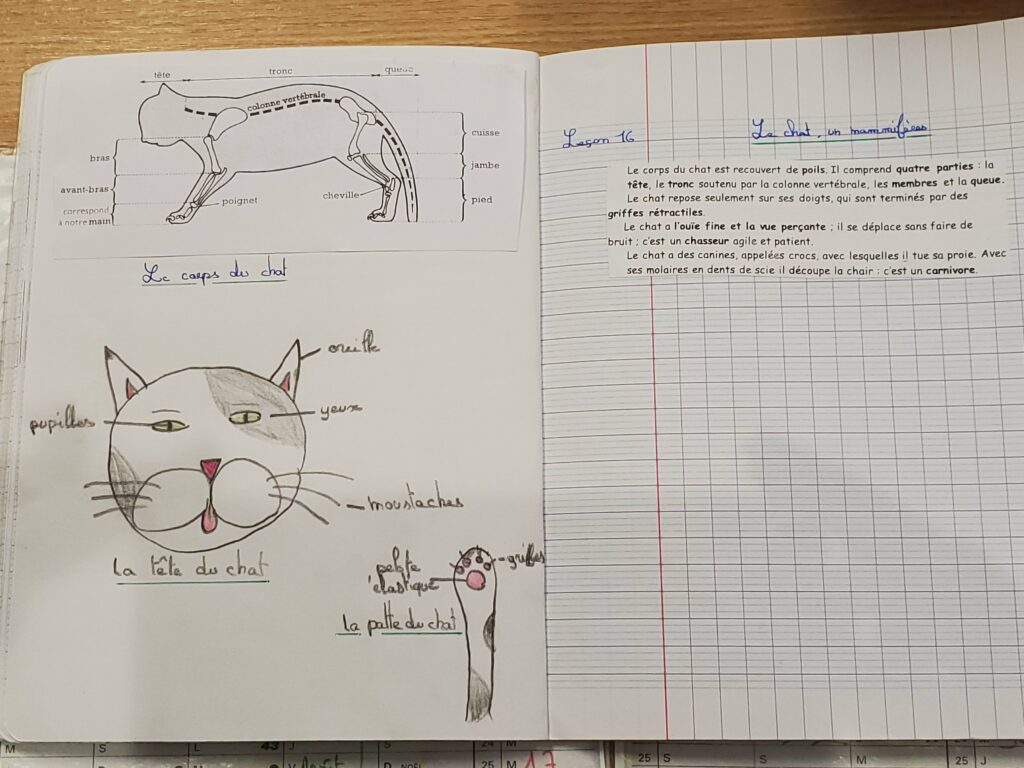 tête tronc queue
colonne vertébrale
bras
avant-bras
correspond
à notre main
poignet
cheville
cuisse
jambe
pied
Le corps du chat
oreille
pupilles
yeux
moustaches
la tête du chat
pelote
élastique
griffes
la patte du chat
Leçon 16
Le chat, un mammifères
Le corps du chat est recouvert de poils. Il comprend quatre parties : la
tête, le tronc soutenu par la colonne vertébrale, les membres et la queue.
Le chat repose seulement sur ses doigts, qui sont terminés par des
griffes rétractiles.
Le chat a l'ouïe fine et la vue perçante ; il se déplace sans faire de
bruit ; c'est un chasseur agile et patient.
Le chat a des canines, appelées crocs, avec lesquelles il tue sa proie. Avec
ses molaires en dents de scie il découpe la chair : c'est un carnivore.
M S L 43 J S 24 M
25 M 17
25 S S M 25 J